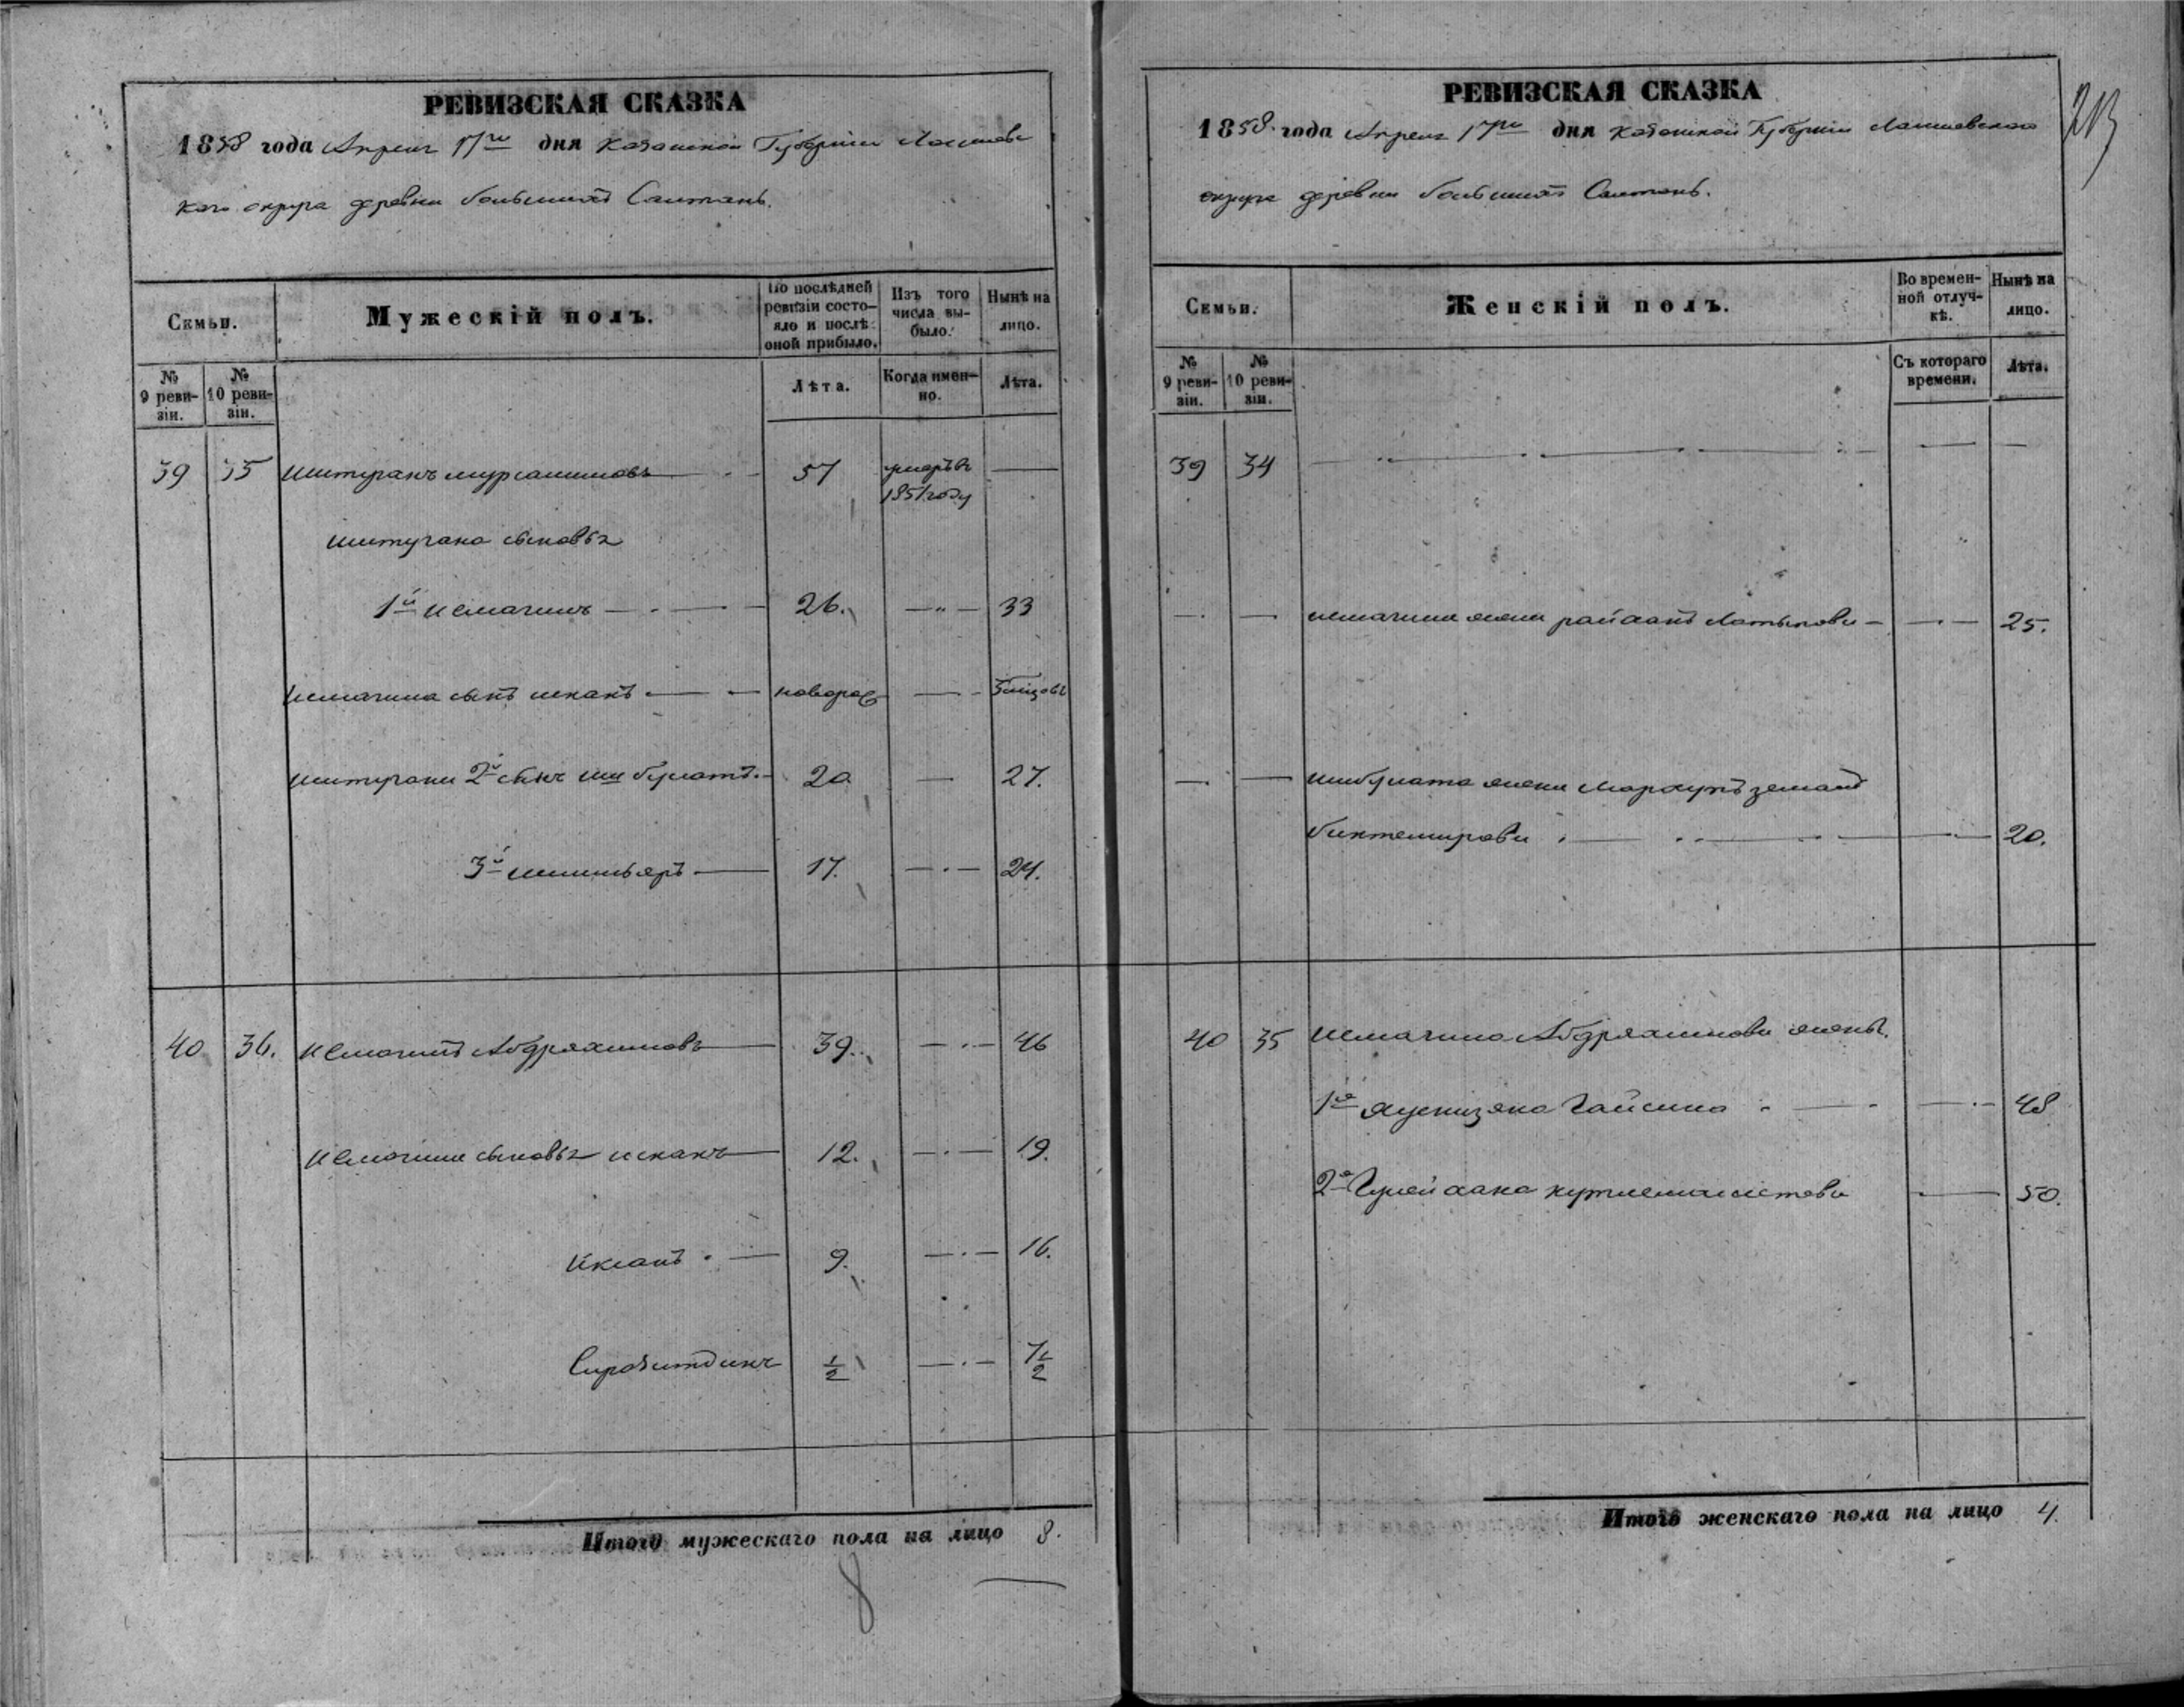 РЕВИЗСКАЯ СКАЗКА
1858 года Апреля 17го дня Казанской Губернiи Лаишевс
каго округа деревни большихъ Салтанъ.
Семьи.
Мужескiй полъ.
По послѣдней ревизiи состояло и послѣ оной прибыло.
Изъ того числа выбыло.
Нынѣ на лицо.
№ 9 ревизiи.
№ 10 ревизiи.
Лѣта.
Когда именно.
Лѣта.
39 35 Иштуганъ 57 умеръ въ 1851 году —
Иштугана сыновья
1й Исмагилъ — 26. — 33
Исмагила сынъ Исхакъ — новорож —
Иштугана 2й сынъ Ишбулатъ — 20. — 27.
3й — 17. — 24.
40 36. Исмагилъ Абдряхимовъ — 39. — 46
Исмагила сыновья Исхакъ — 12. — 19.
9. — 16.
Сиразитдинъ 1/2 — 7 1/2
Итого мужескаго пола на лицо 8.
8
РЕВИЗСКАЯ СКАЗКА
1858 года Апреля 17го дня Казанской Губернiи Лаишевскаго
округа деревни большихъ Салтанъ.
213
Семьи.
Женскiй полъ.
Во временной отлучкѣ.
Нынѣ на лицо.
№ 9 ревизiи.
№ 10 ревизiи.
Съ котораго времени.
Лѣта.
39 34 — — —
— — Исмагила жена Райханъ Латыпова — — 25.
— — Ишбулата жена
Биктемирова — — 20.
40 35 Исмагила Абдряхимова жены.
1я Гайсина — — 48
2я — 50.
Итого женскаго пола на лицо 4.